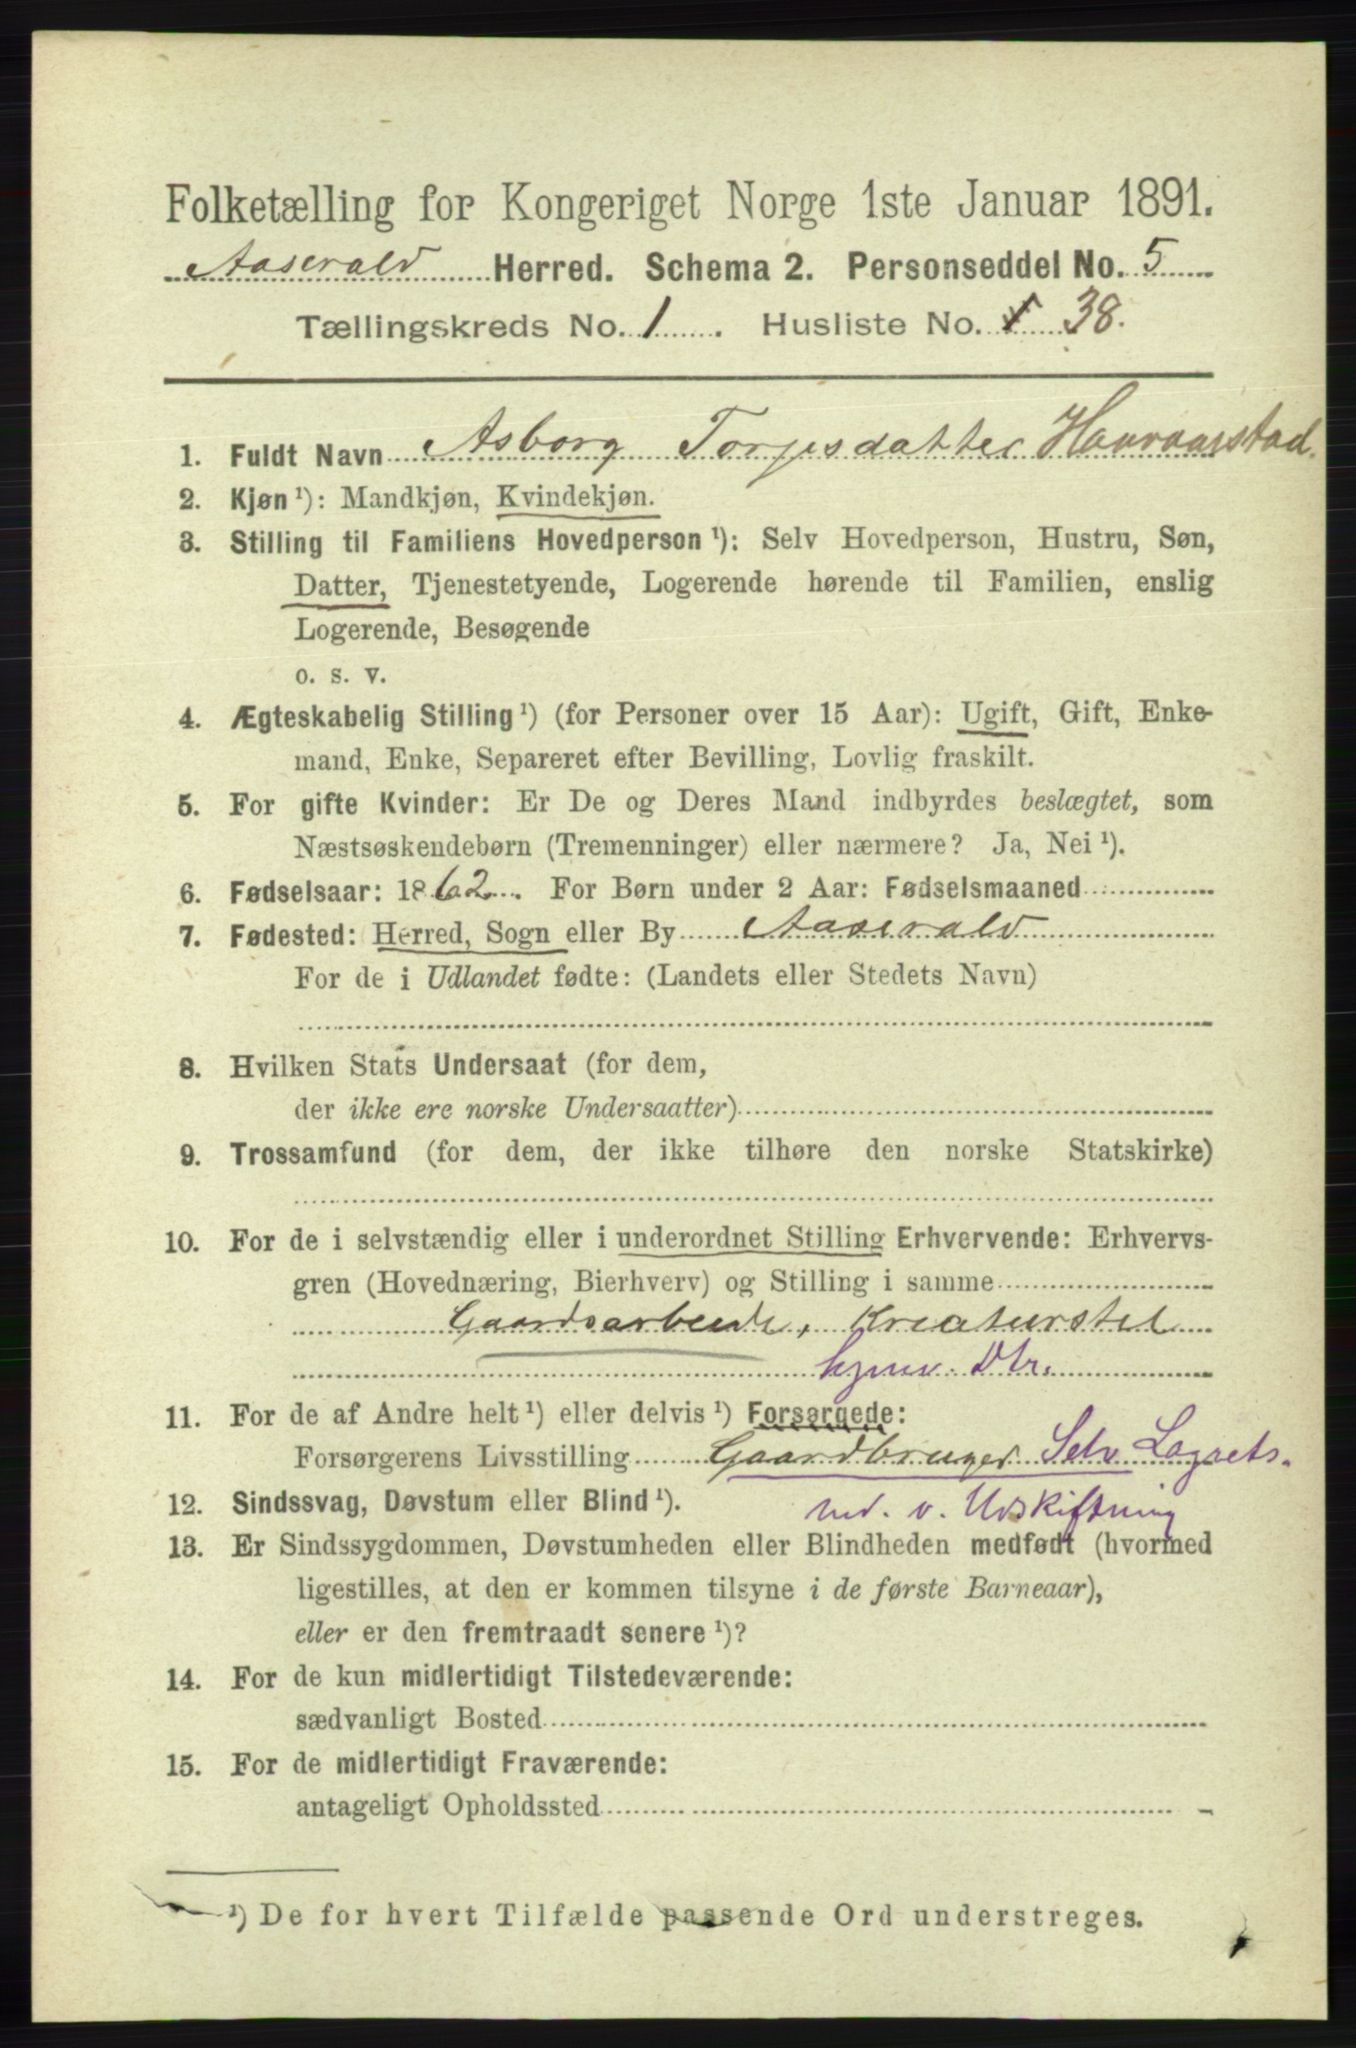 Folketælling for Kongeriget Norge 1ste Januar 1891.
Aaserald Herred. Schema 2. Personseddel No. 5
Tællingskreds No. 1. Husliste No. 38.
1. Fuldt Navn Asborg Torjesdatter Haavaarstad.
2. Kjøn ¹): Mandkjøn, Kvindekjøn.
3. Stilling til Familiens Hovedperson ¹): Selv Hovedperson, Hustru, Søn,
Datter, Tjenestetyende, Logerende hørende til Familien, enslig
Logerende, Besøgende
o. s. v.
4. Ægteskabelig Stilling ¹) (for Personer over 15 Aar): Ugift, Gift, Enke-
mand, Enke, Separeret efter Bevilling, Lovlig fraskilt.
5. For gifte Kvinder: Er De og Deres Mand indbyrdes beslægtet, som
Næstsøskendebørn (Tremenninger) eller nærmere? Ja, Nei ¹).
6. Fødselsaar: 1862. For Børn under 2 Aar: Fødselsmaaned
7. Fødested: Herred, Sogn eller By Aaserald
For de i Udlandet fødte: (Landets eller Stedets Navn)
8. Hvilken Stats Undersaat (for dem,
der ikke ere norske Undersaatter)
9. Trossamfund (for dem, der ikke tilhøre den norske Statskirke)
10. For de i selvstændig eller i underordnet Stilling Erhvervende: Erhvervs-
gren (Hovednæring, Bierhverv) og Stilling i samme
Gaardsarbeide, Kreaturstel
hjmv. Dtr.
11. For de af Andre helt ¹) eller delvis ¹) Forsørgede:
Forsørgerens Livsstilling Gaardbruger Selv Lagrets.
12. Sindssvag, Døvstum eller Blind ¹). md. v. Udskiftning
13. Er Sindssygdommen, Døvstumheden eller Blindheden medfødt (hvormed
ligestilles, at den er kommen tilsyne i de første Barneaar),
eller er den fremtraadt senere ¹)?
14. For de kun midlertidigt Tilstedeværende:
sædvanligt Bosted
15. For de midlertidigt Fraværende:
antageligt Opholdssted
¹) De for hvert Tilfælde passende Ord understreges.